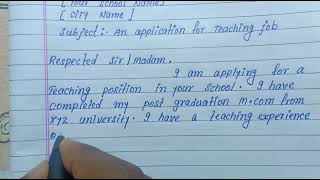 [ Your School Name]
[ City Name ]
Subject:- An application for Teaching job
Respected Sir/madam.
I am applying for a
Teaching position in your school. I have
completed my post graduation M.com from
XYZ university. I have a teaching experience
o